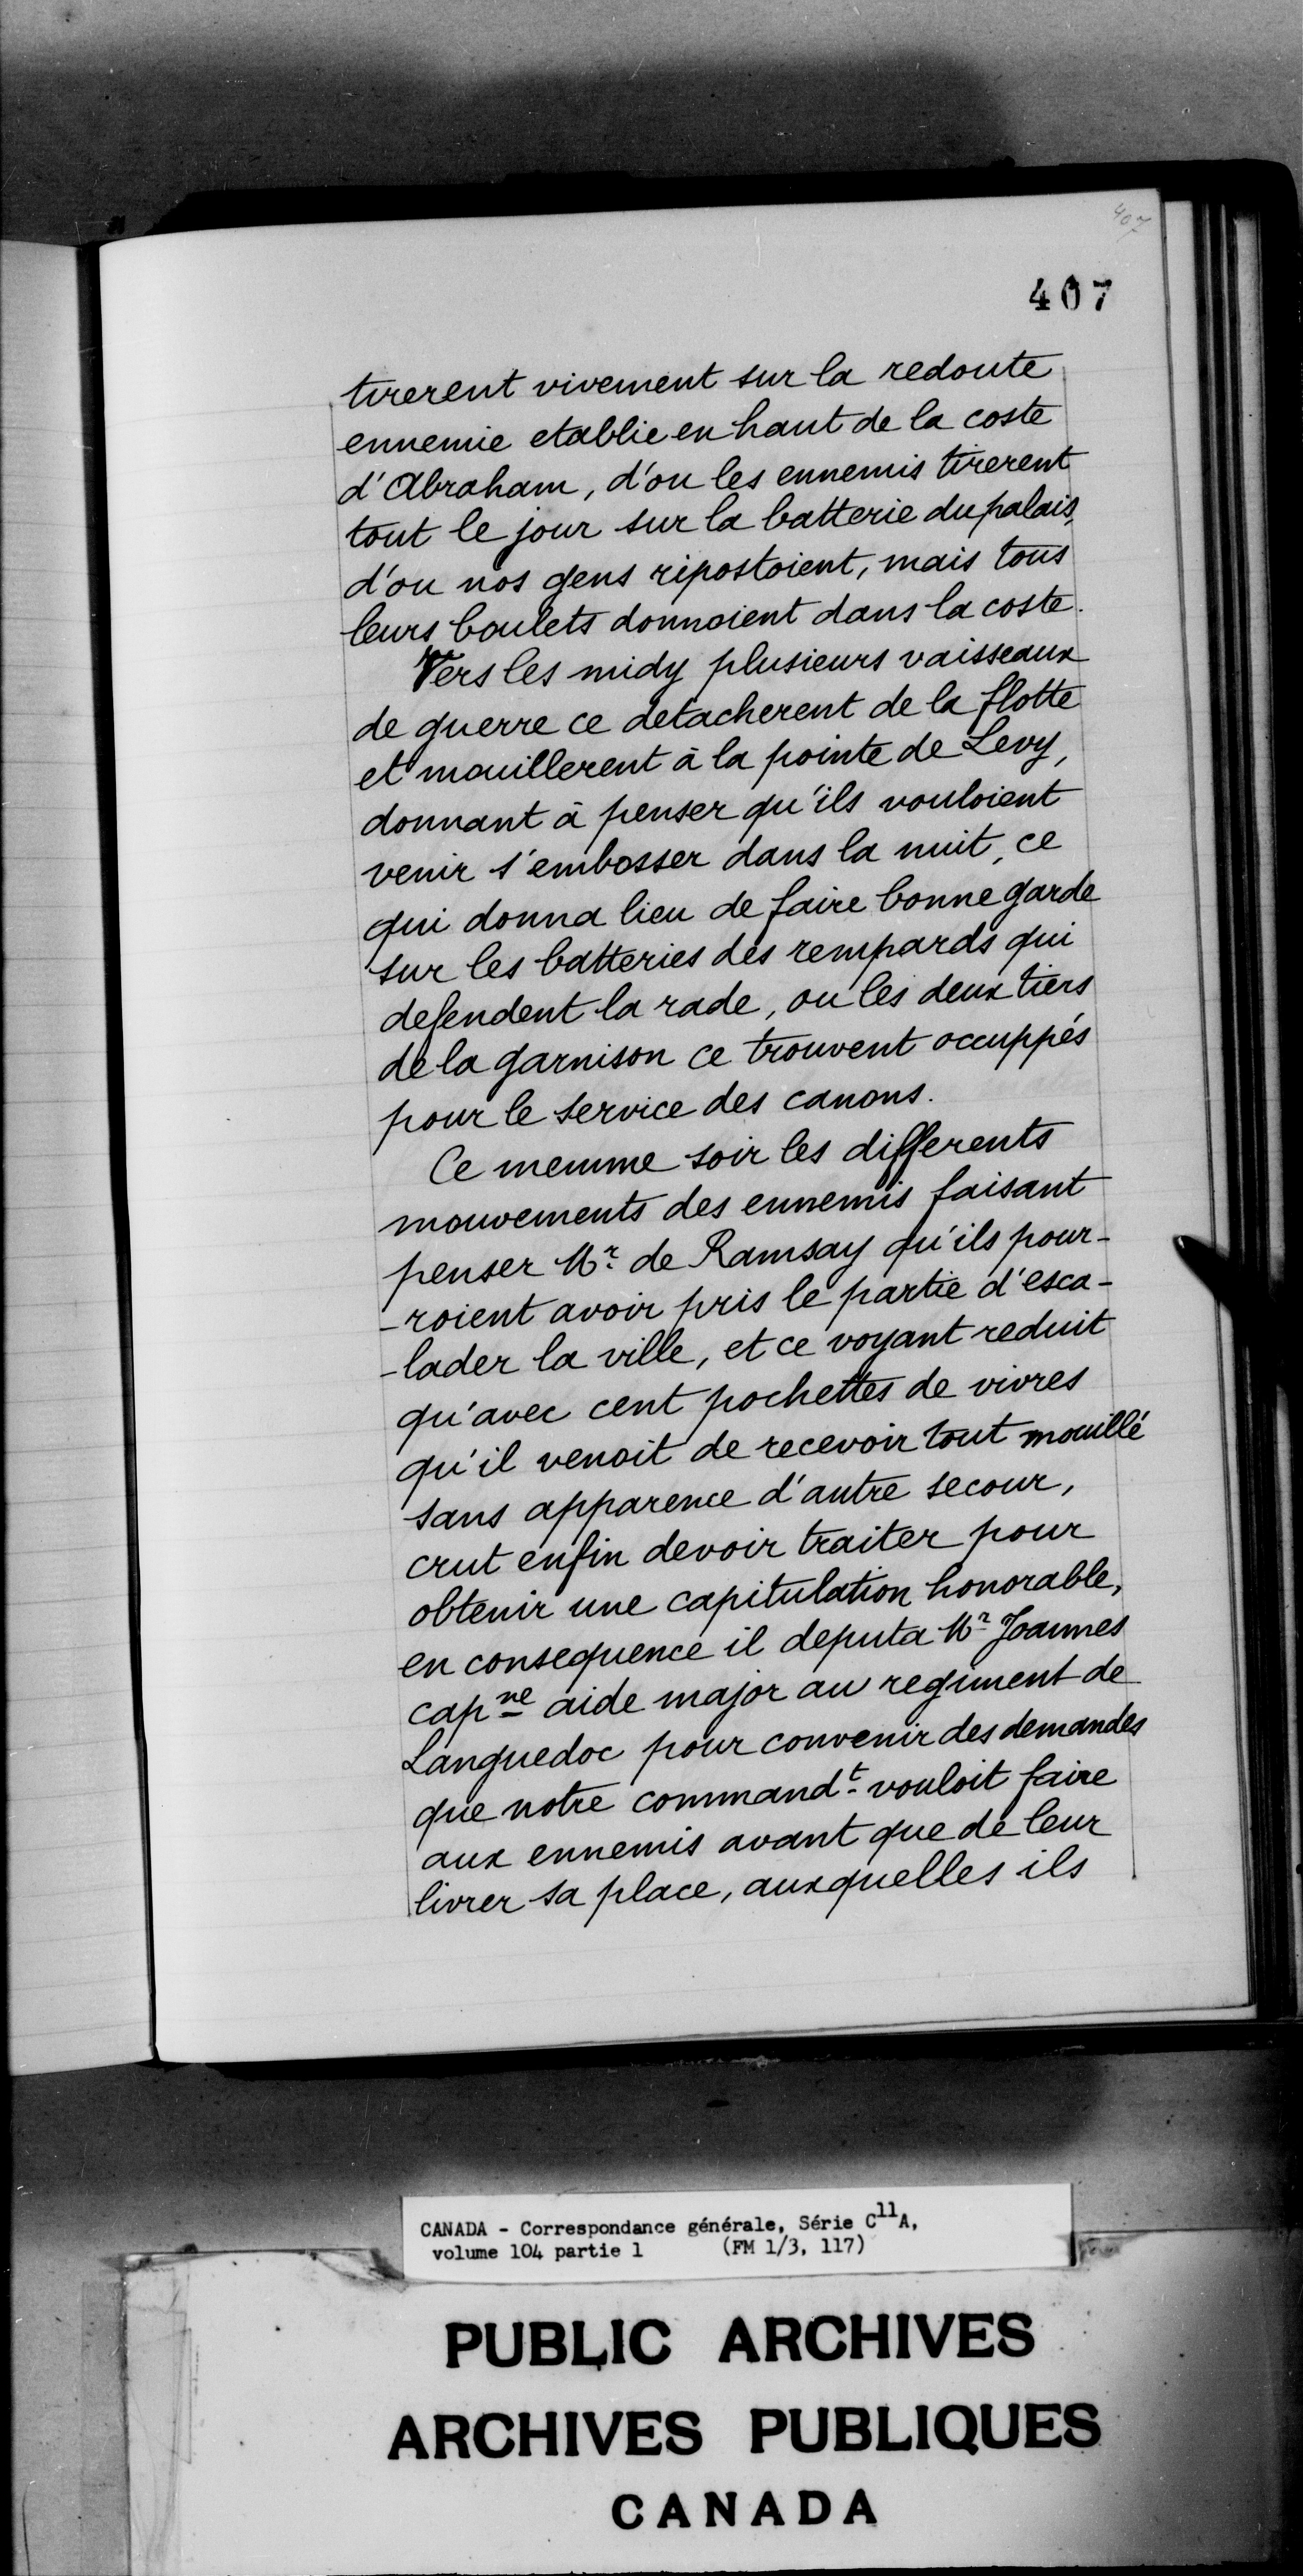 407
407
tirerent vivement sur la redoute
ennemie etablie en haut de la coste
d'Abraham, d'ou les ennemis tirerent
tout le jour sur la batterie du palais,
d'ou nos gens ripostoient, mais tous
leurs boulets donnoient dans la coste.
Vers les midy plusieurs vaisseaux
de guerre ce detacherent de la flotte
et mouillerent à la pointe de Levy,
donnant à penser qu'ils vouloient
venir s'embosser dans la nuit, ce
qui donna lieu de faire bonne garde
sur les batteries des rempards qui
defendent la rade, ou les deux tiers
de la garnison ce trouvent occuppés
pour le service des canons.
Ce memme soir les differents
mouvements des ennemis faisant
penser Mr. de Ramsay qu'ils pour-
-roient avoir pris le partie d'esca-
-lader la ville, et ce voyant reduit
qu'avec cent pochettes de vivres
qu'il venoit de recevoir tout mouillé
sans apparence d'autre secour,
crut enfin devoir traiter pour
obtenir une capitulation honorable,
en consequence il deputa Mr. Joannes
capne aide major au regiment de
Languedoc pour convenir des demandes
que notre commandt. vouloit faire
aux ennemis avant que de leur
livrer sa place, auxquelles ils
CANADA - Correspondance générale, Série C11A,
volume 104 partie 1 (FM 1/3, 117)
PUBLIC ARCHIVES
ARCHIVES PUBLIQUES
CANADA